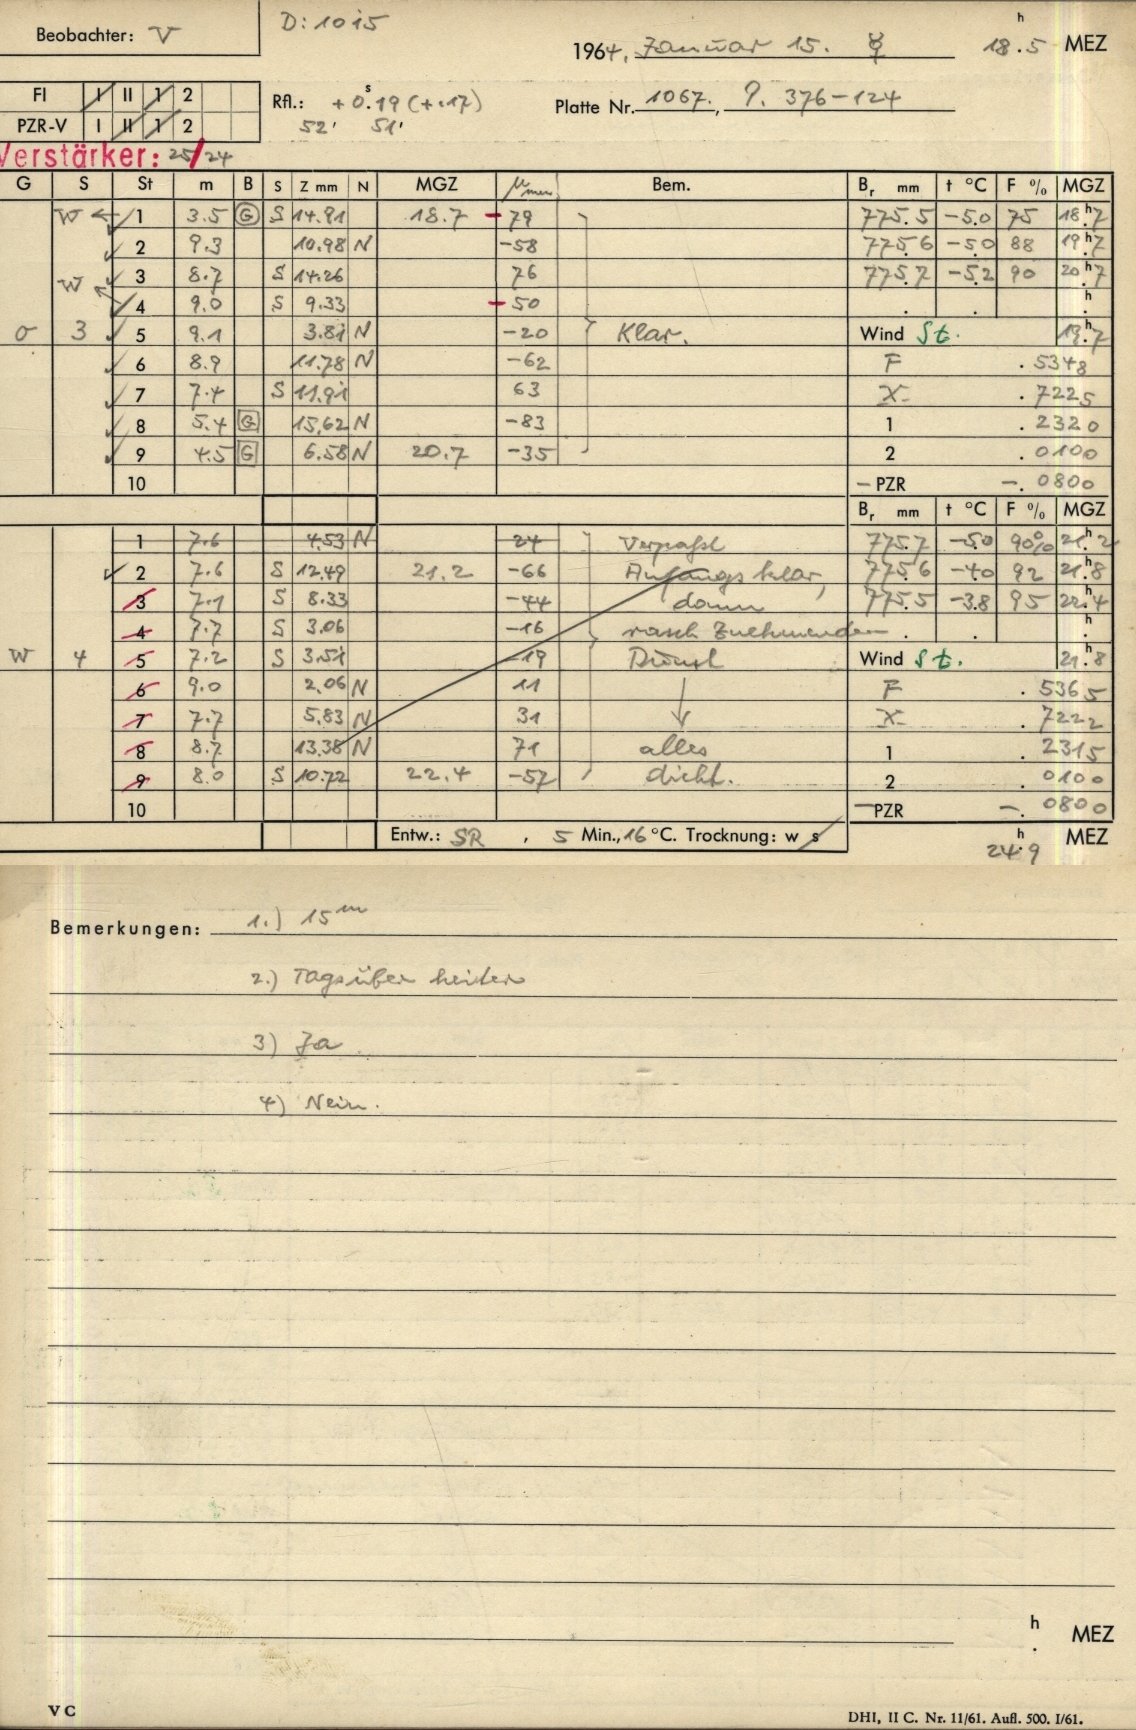 Beobachter: V
D: 10 i5
1964, Januar 15. ☿ 18h.5 MEZ
FI I II 1 2
PZR-V I II 1 2
Rfl.: +0s.19 (+.17)
52' 51'
Platte Nr. 1067., 9. 376-124
Verstärker: 25/24
G S St m B S Z mm N MGZ μ Bem. Br mm t °C F % MGZ
W 1 3.5 G S 14.91 18.7 -79 775.5 -5.0 75 18h.7
2 9.3 10.98 N -58 775.6 -5.0 88 19h.7
3 8.7 S 14.26 76 775.7 -5.2 90 20h.7
W 4 9.0 S 9.33 -50 . . h.
O 3 5 9.1 3.81 N -20 Klar. Wind St. 19h.7
6 8.9 11.78 N -62 F .5348
7 7.4 S 11.91 63 X- .7225
8 5.4 G 15.62 N -83 1 .2320
9 4.5 G 6.58 N 20.7 -35 2 .0100
10 - PZR -.0800
Br mm t °C F % MGZ
1 7.6 4.53 N 24 Verpaßt 775.7 -5.0 90% 21h.2
2 7.6 S 12.49 21.2 -66 Anfangs klar, 775.6 -4.0 92 21h.8
3 7.1 S 8.33 -44 dann 775.5 -3.8 95 22h.4
4 7.7 S 3.06 -16 rasch zuehmender . . h.
W 4 5 7.2 S 3.51 -19 Dunst Wind St. 21h.8
6 9.0 2.06 N 11 F .5365
7 7.7 5.83 N 31 X- .7222
8 8.7 13.38 N 71 alles 1 .2315
9 8.0 S 10.72 22.4 -57 dicht. 2 .0100
10 -PZR -.0800
Entw.: SR , 5 Min., 16 °C. Trocknung: w s
24h.9 MEZ
Bemerkungen: 1.) 15m
2.) Tagsüber heiter
3) Ja
4) Nein.
h. MEZ
V C
DHI, II C. Nr. 11/61. Aufl. 500. I/61.